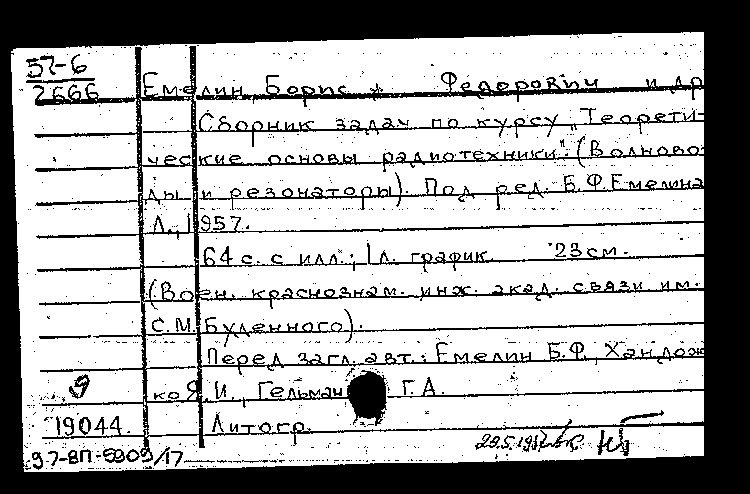 57-6
2666 Емелин, Борис Федорович и др
Сборник задач по курсу „Теорети-
ческие основы радиотехники". (Волново-
ды и резонаторы). Под ред. Б.Ф.Емелина
Л., 1957.
64 с. с илл.; 1 л. график. 23 см.
(Воен. краснознам. инж. акад. связи им.
С.М. Буденного).
Перед загл. авт.: Емелин Б.Ф., Хандож
ко Я.И., Гельман Г.А.
19044. Литогр.